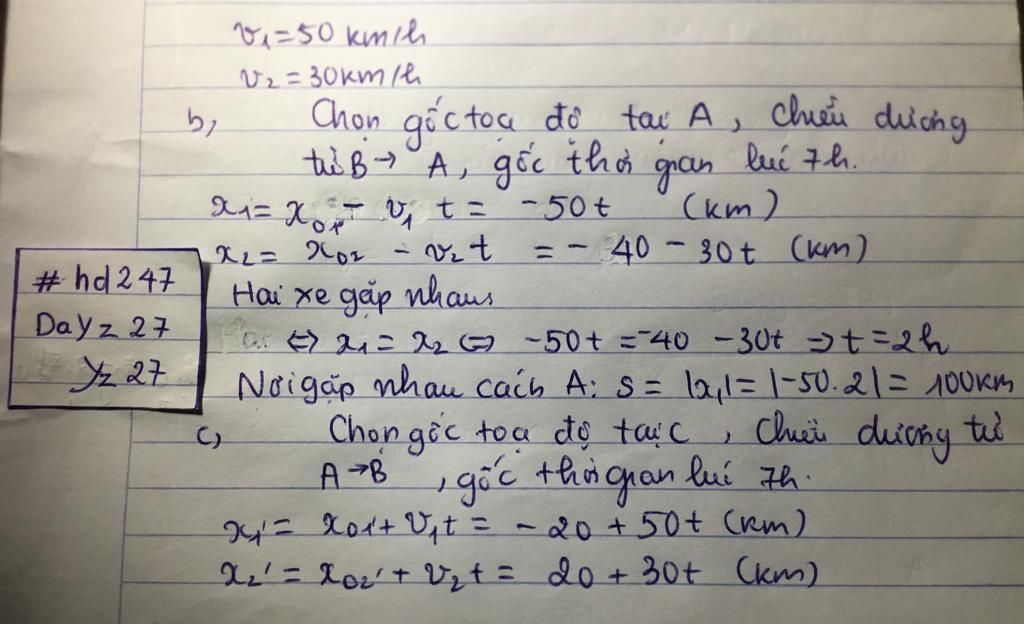 v₁ = 50 km/h
v₂ = 30km/h
b, Chọn gốc toạ độ tại A, chiều dương
từ B → A, gốc thời gian lúc 7h.
x₁ = x₀₁ - v₁ t = -50t (km)
x₂ = x₀₂ - v₂t = - 40 - 30t (km)
Hai xe gặp nhau
⇔ x₁ = x₂ ⇔ -50t = -40 - 30t ⇒ t = 2h
Nơi gặp nhau cách A: S = |x₁| = |-50.2| = 100km
c, Chọn gốc toạ độ tại C, chiều dương từ
A → B, gốc thời gian lúc 7h.
x₁' = x₀₁' + v₁t = - 20 + 50t (km)
x₂' = x₀₂' + v₂t = 20 + 30t (km)
# hd247
Dayz 27
Yz 27